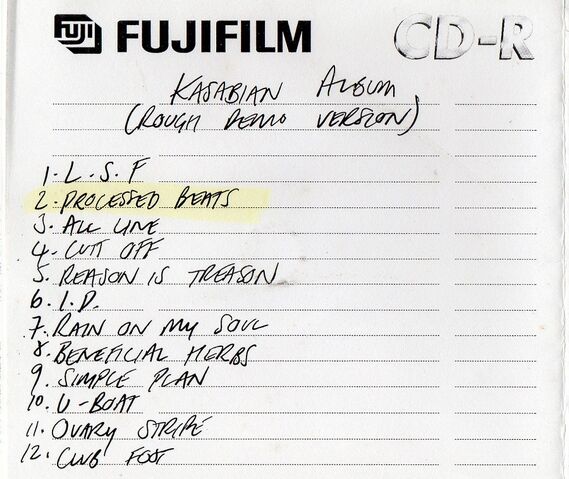 FUJI FUJIFILM CD-R
KASABIAN ALBUM
(ROUGH DEMO VERSION)
1. L.S.F
2. PROCESSED BEATS
3. ALL LINE
4. CUTT OFF
5. REASON IS TREASON
6. I.D.
7. RAIN ON MY SOUL
8. BENEFICIAL HERBS
9. SIMPLE PLAN
10. U-BOAT
11. OVARY STRIPE
12. CLUB FOOT